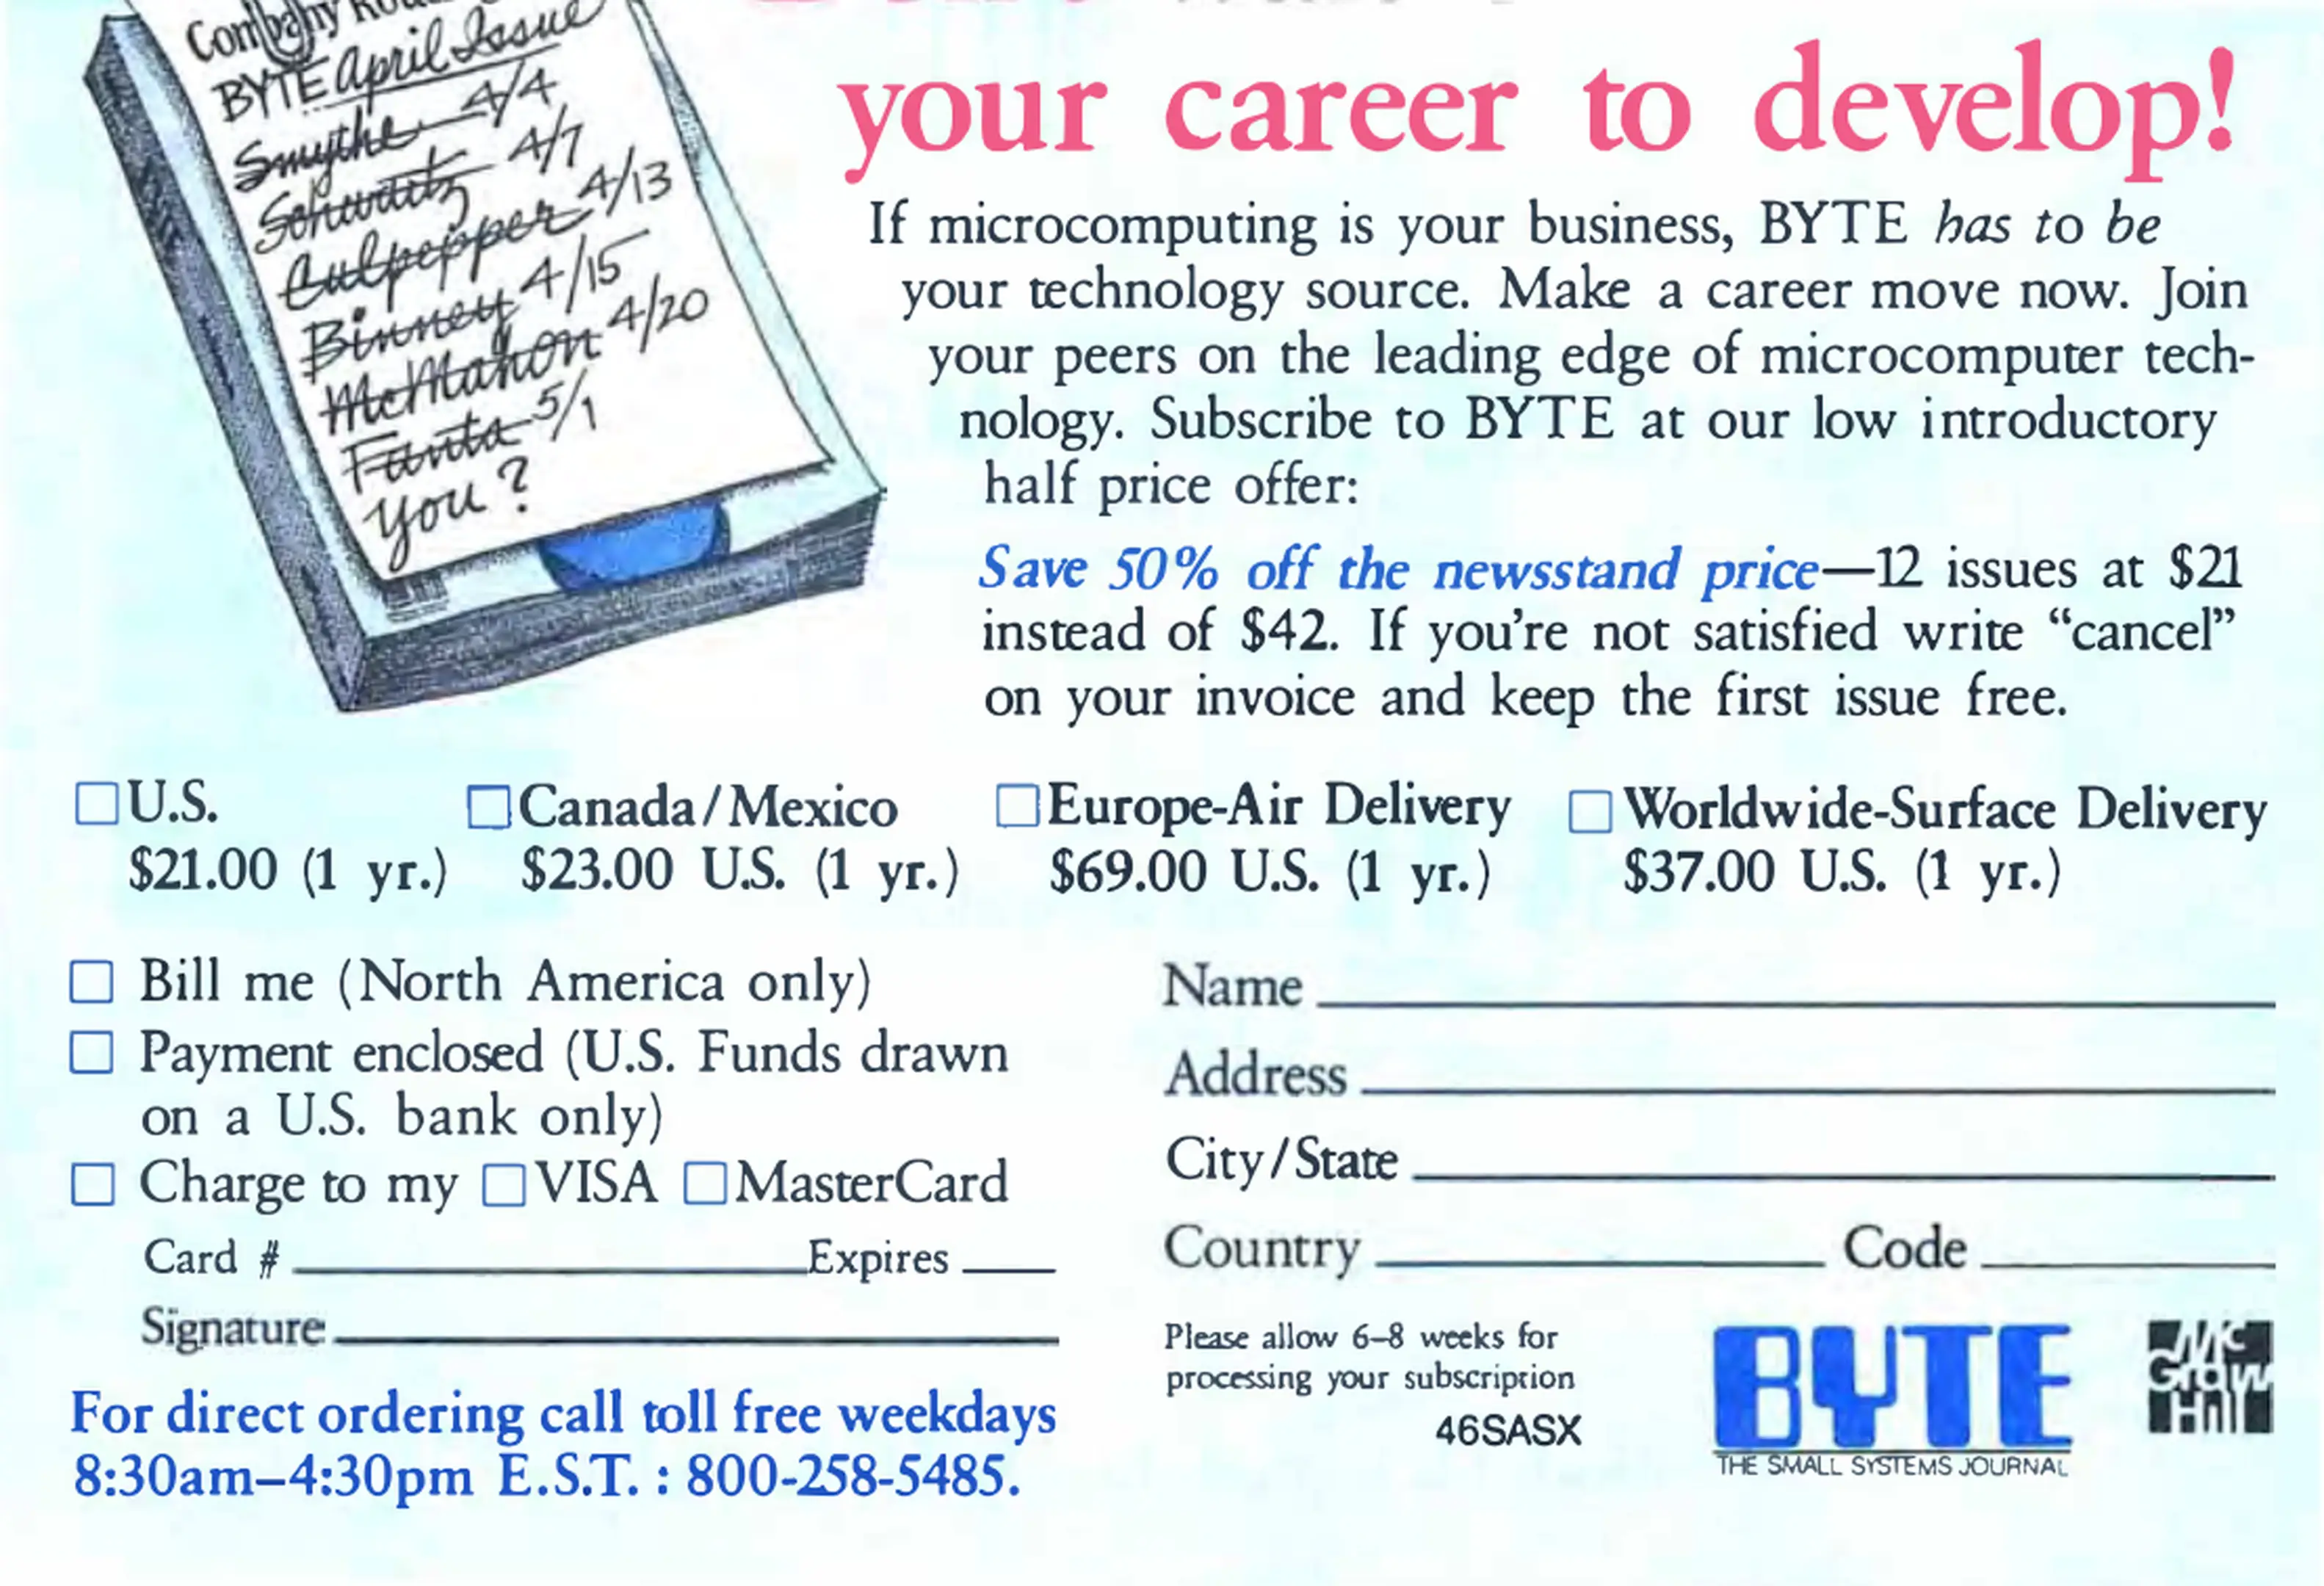 BYTE April Issue
Smythe 4/4
Schwartz 4/7
Culpepper 4/13
Binney 4/15
McMahon 4/20
Fanta 5/1
You?
your career to develop!
If microcomputing is your business, BYTE has to be
your technology source. Make a career move now. Join
your peers on the leading edge of microcomputer tech-
nology. Subscribe to BYTE at our low introductory
half price offer:
Save 50% off the newsstand price—12 issues at $21
instead of $42. If you're not satisfied write “cancel”
on your invoice and keep the first issue free.
☐ U.S. ☐ Canada/Mexico ☐ Europe-Air Delivery ☐ Worldwide-Surface Delivery
$21.00 (1 yr.) $23.00 U.S. (1 yr.) $69.00 U.S. (1 yr.) $37.00 U.S. (1 yr.)
☐ Bill me (North America only)
☐ Payment enclosed (U.S. Funds drawn
on a U.S. bank only)
☐ Charge to my ☐ VISA ☐ MasterCard
Card # Expires
Signature
For direct ordering call toll free weekdays
8:30am–4:30pm E.S.T. : 800-258-5485.
Name
Address
City/State
Country Code
Please allow 6–8 weeks for
processing your subscription
46SASX
BYTE
THE SMALL SYSTEMS JOURNAL
Mc
Graw
Hill